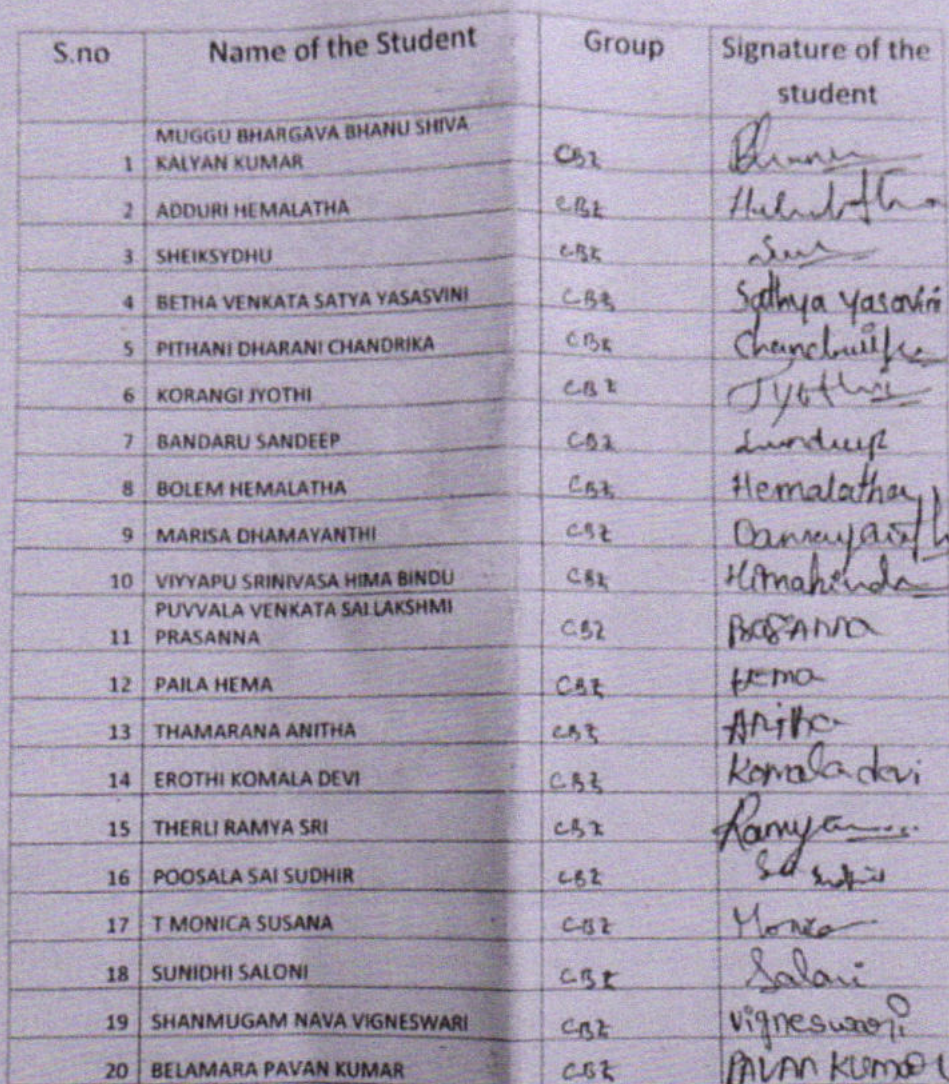 S.no Name of the Student Group Signature of the
student
MUGGU BHARGAVA BHANU SHIVA
1 KALYAN KUMAR CBZ Bhanu
2 ADDURI HEMALATHA CBZ Hemalatha
3 SHEIKSYDHU CBZ
4 BETHA VENKATA SATYA YASASVINI CBZ Sathya Yasasvini
5 PITHANI DHARANI CHANDRIKA CBZ Chandrika
6 KORANGI JYOTHI CBZ Jyothi
7 BANDARU SANDEEP CBZ Sandeep
8 BOLEM HEMALATHA CBZ Hemalatha
9 MARISA DHAMAYANTHI CBZ Damayanth
10 VIYYAPU SRINIVASA HIMA BINDU CBZ Himabindu
PUVVALA VENKATA SAI LAKSHMI
11 PRASANNA CBZ
12 PAILA HEMA CBZ Hema
13 THAMARANA ANITHA CBZ Anitha
14 EROTHI KOMALA DEVI CBZ Komala devi
15 THERLI RAMYA SRI CBZ Ramya
16 POOSALA SAI SUDHIR CBZ Sai Sudhir
17 T MONICA SUSANA CBZ Monica
18 SUNIDHI SALONI CBZ Saloni
19 SHANMUGAM NAVA VIGNESWARI CBZ Vigneswari
20 BELAMARA PAVAN KUMAR CBZ PAVAN KUMAR